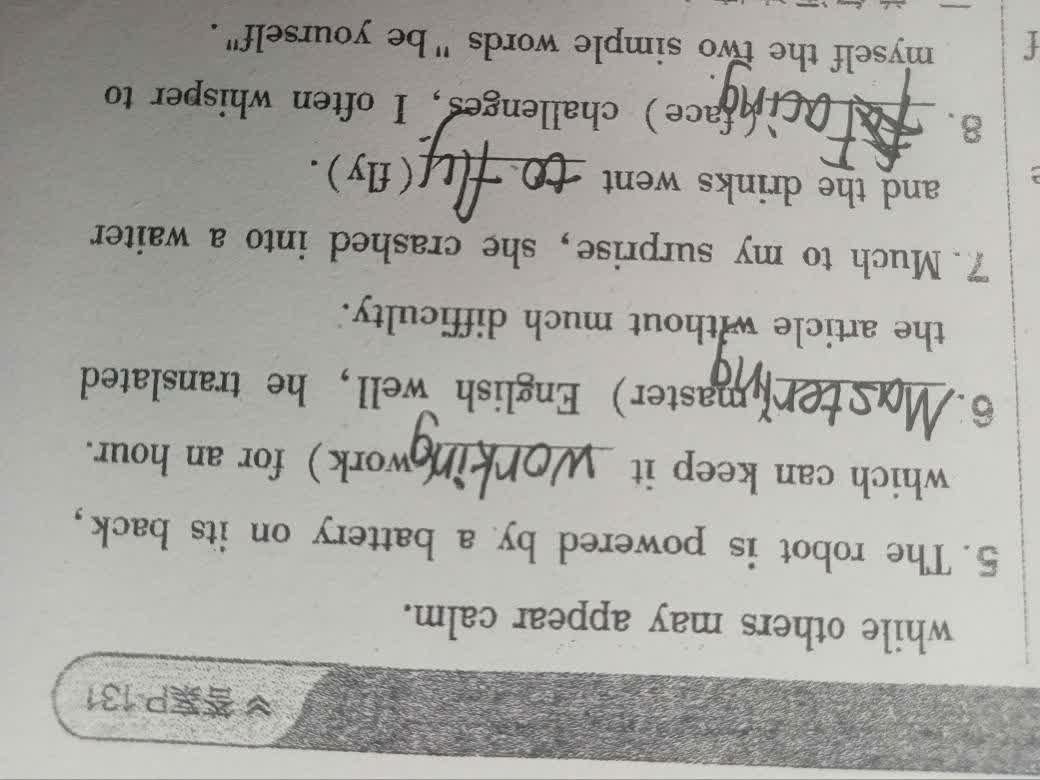 答案P.131
while others may appear calm.
5. The robot is powered by a battery on its back,
which can keep it working (work) for an hour.
6. Mastering (master) English well, he translated
the article without much difficulty.
7. Much to my surprise, she crashed into a waiter
and the drinks went to fly (fly).
8. Facing (face) challenges, I often whisper to
myself the two simple words "be yourself".